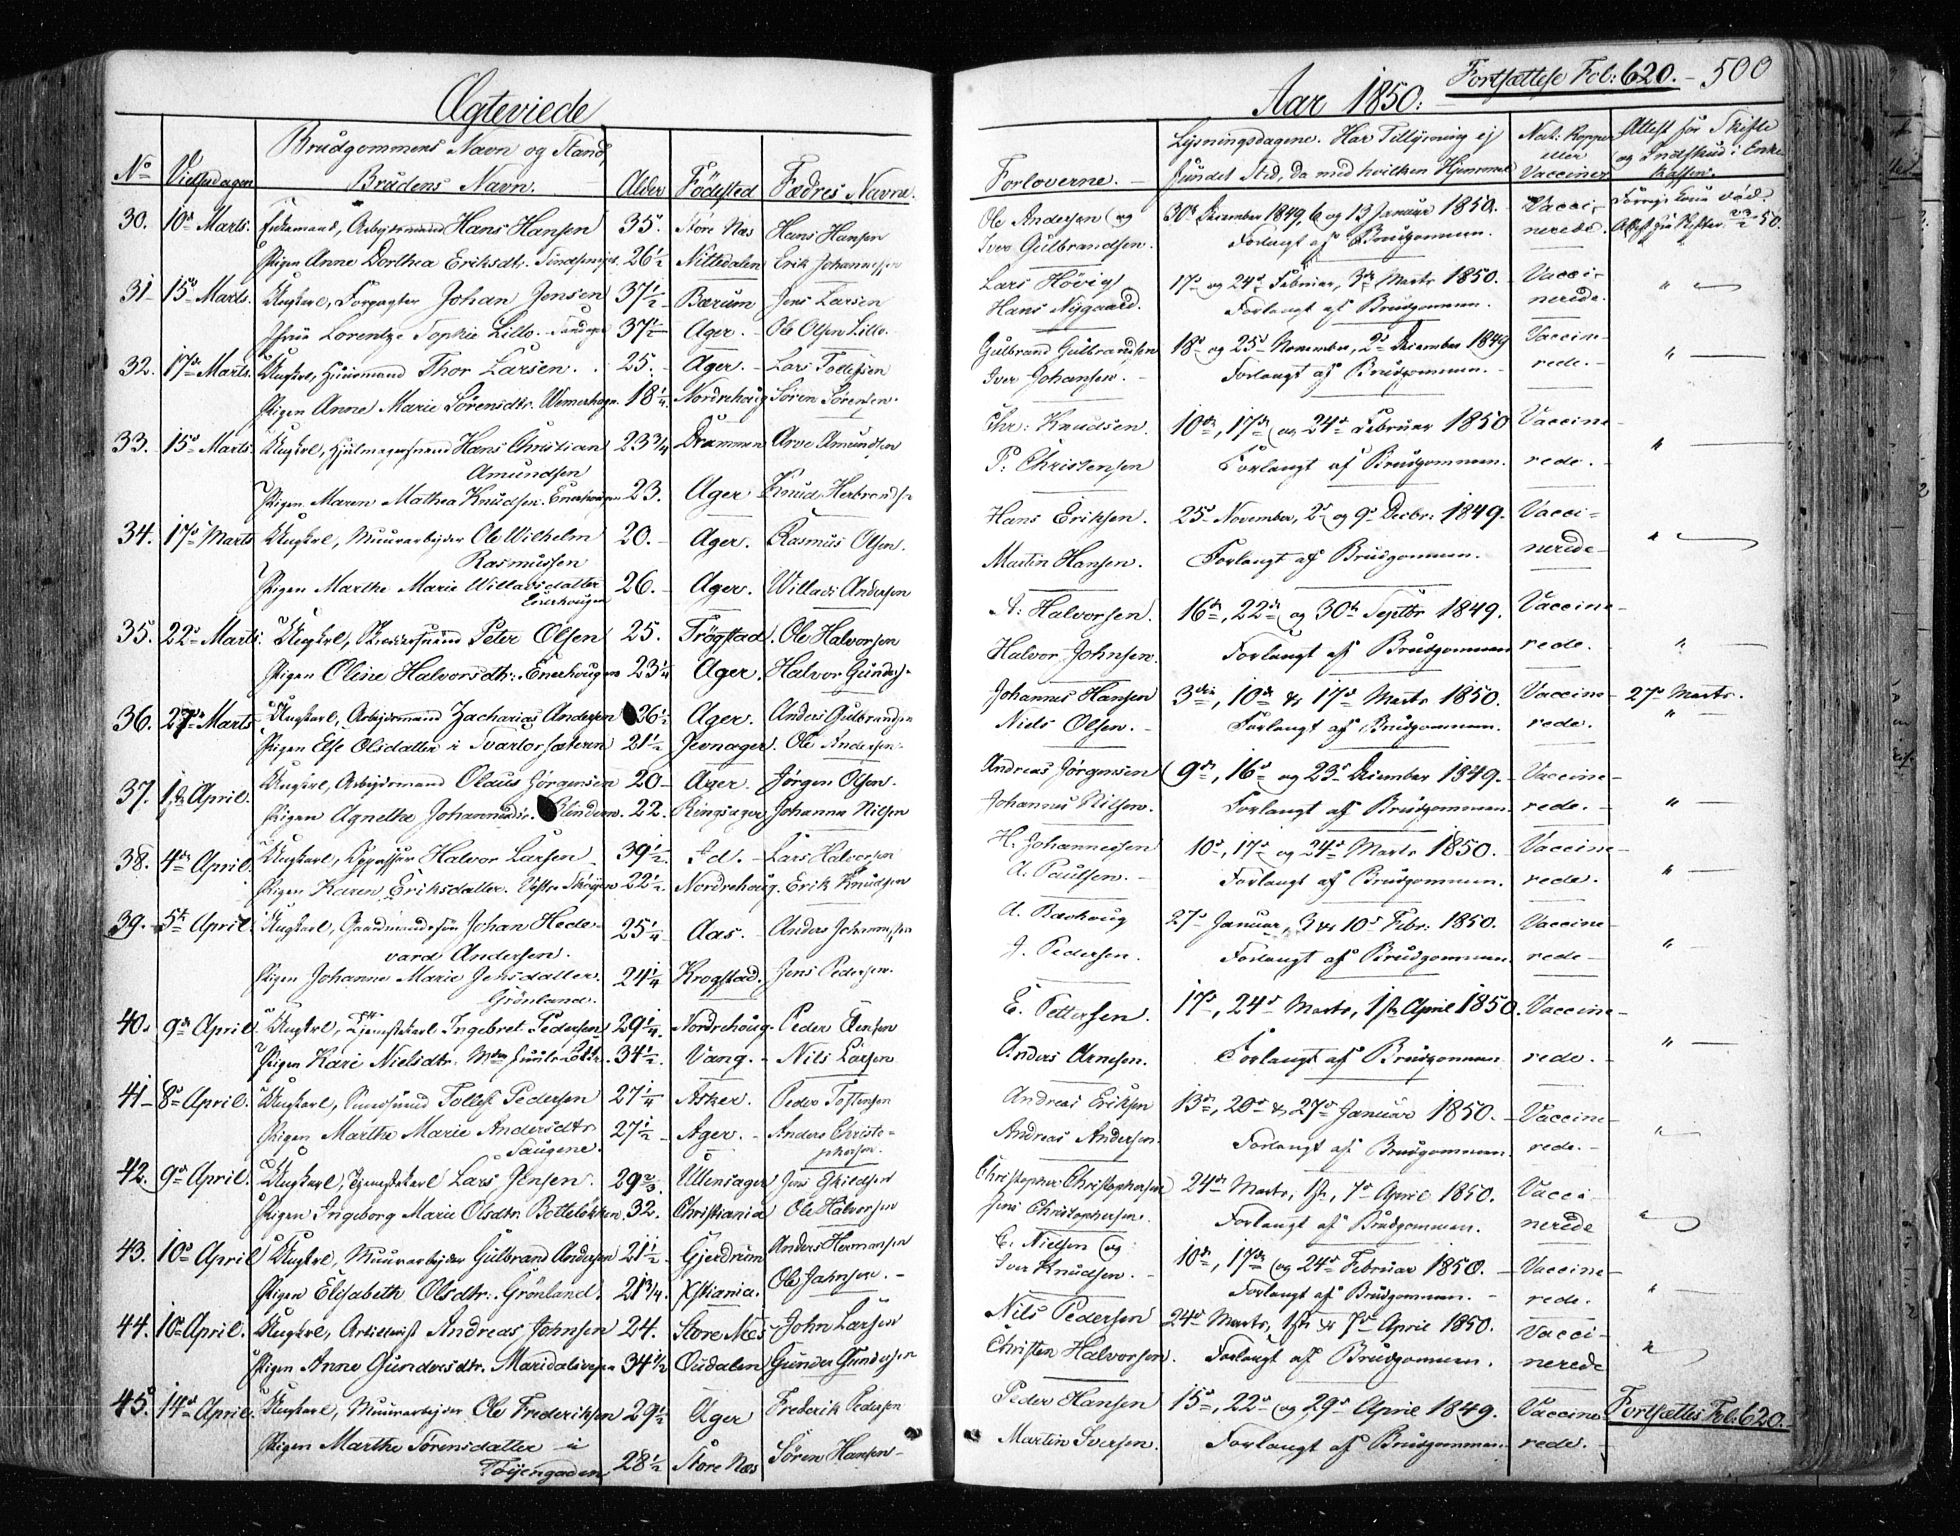 Ægteviede
No
Vielsesdagen
Brudgommens Navn og Stand,
Brudens Navn.
Alder
Fødested
Fædres Navne.
30. 10de Marts. Enkemand, Arbejdsmand Hans Hansen 35. Store Næs Hans Hansen
Pigen Anne Dorthea Eriksdtr. 26½ Nittedalen Erik Johannessen
31 15de Marts. Ungkarl, Forpagter Johan Jensen 37½ Bærum Jens Larsen
Lorentze Sophie Lillo. 37½ Ager. Ole Olsen Lillo.
32. 17de Marts. Ungkarl, Huusmand Thor Larsen. 25. Ager. Lars Tollefsen
Pigen Anne Marie Sørensdtr. 18¼ Nordrehoug Søren Sørensen.
33. 15de Marts. Ungkarl, Hjulmagersvend Hans Christian 23¾ Drammen Arve Amundsen
Amundsen
Pigen Maren Mathea Knudsen. Enerhougen 23. Ager Knud Herbrands
34. 17de Marts Ungkarl, Muurarbejder Ole Wilhelm 20. Ager. Rasmus Olsen.
Rasmussen
Pigen Marthe Marie Willadsdatter 26. Ager. Willads Andersen
Enerhougen
35. 22de Marts. Ungkarl, Peter Olsen 25. Trögstad. Ole Halvorsen
Pigen Oline Halvorsdtr. Enerhougen 23¼ Ager. Halvor Gunders
36. 27de Marts Ungkarl, Arbejdsmand Zacharias Andersen 26½ Ager. Anders Gulbrandsen
Pigen Else Olsdatter i Svartorsæteren 21½ Jevnager. Ole Andersen.
37. 1ste April. Ungkarl, Arbejdsmand Olaus Jørgensen 20 Ager. Jörgen Olsen.
Pigen Agnethe Johannesdtr. Blindern. 22. Ringsager Johannes Nilsen
38. 4de April. Ungkarl, Oppasser Halvor Larsen 39½. Id. Lars Halvorsen
Pigen Karen Eriksdatter. Vestre Skøyen 22½. Nordrehoug. Erik Knudsen
39. 5te April. Ungkarl, Gaardmandssøn Johan Hede- 25¼ Aas. Anders Johannessen
vard Andersen.
Pigen Johanne Marie Jensdatter. 24¼ Krogstad. Jens Pedersen.
Grönland.
40. 9de April. Ungkarl, Tjenestekarl Ingebret Pedersen 29¼ Nordrehoug. Peder Evensen
Pigen Kari Nielsdtr. 34½. Vang. Nils Larsen
41 8de April. Ungkarl, Tollef Pedersen 27¼ Asker. Peder Tostensen
Pigen Marthe Marie Andersdtr 27½ Ager. Anders Christo-
Saugene. phersen.
42. 9de April. Ungkarl, Tjenestekarl Lars Jensen. 29⅔. Ullensager Jens Skildsen
Pigen Ingeborg Marie Olsdtr. Bolteløkken. 32. Christiania Ole Halvorsen
43. 10de April Ungkarl, Muurarbejder Gulbrand Andersen 21½ Gjerdrum Anders Hermansen
Pigen Elisabeth Olsdtr. Grönland. 21¾. Xstiania. Ole Johnsen.
44. 10de April. Ungkarl, Artillerist Andreas Johnsen 24. Store Næs John Larsen
Pigen Anne Gundersdtr. Maridalsvejen 34½ Ourdalen Gunder Gundersen
45. 14de April. Ungkarl, Muurarbejder Ole Frederiksen 29½ Ager Frederik Pedersen
Pigen Marthe Sørensdatter i 28½ Store Næs Søren Hansen
Tøijengaden
Aar 1850. Fortsættelse Fol: 620. 500
Forloverne.
Lysningsdagene. Har Tillysning ej
fundet Sted, da med hvilken Hjemmel
Nat: Kopper
eller
Vaccineret
Attest for Skifte
og Indskud i Enke
Kassen.
Ole Andersen og 30te December 1849, 6 og 13 Januar 1850. Vacci- Forrige Kone død.
Iver Gulbrandsen. Forlangt af Brudgommen. nerede. Attest fra Skifter. 23/2 50.
Lars Hövig 17de og 24de Februar, 3die Marts 1850. Vacci- "
Hans Nygaard. Forlangt af Brudgommen. nerede.
Gulbrand Gulbrandsen 18de og 25de November, 2den December 1849 Vaccine- "
Iver Johansen. Forlangt af Brudgommen. rede.
Chr: Knudsen. 10de, 17de og 24de Februar 1850 Vaccine- "
P: Christensen Forlangt af Brudgommen. rede.
Hans Eriksen. 25de November, 2den og 9de Decbr: 1849. Vacci- "
Martin Hansen. Forlangt af Brudgommen. nerede
A: Halvorsen. 16de, 22de og 30te Septbr 1849. Vaccine- "
Halvor Johnsen. Forlangt af Brudgommen rede.
Johannes Hansen 3die, 10de & 17de Marts 1850. Vaccine- 27de Marts.
Niels Olsen. Forlangt af Brudgommen. rede. "
Andreas Jørgensen 9de, 16de og 23de December 1849. Vaccine- "
Johannes Nilsen. Forlangt af Brudgommen. rede.
H. Johannessen 10de, 17de og 24de Marts 1850. Vaccine- "
A. Paulsen. Forlangt af Brudgommen. rede.
A. Backoug 27de Januar, 3 & 10de Febr: 1850. Vaccine- "
J. Pedersen. Forlangt af Brudgommen. rede
E. Pettersen. 17de, 24de Marts, 1ste April 1850. Vaccine- "
Anders Arnesen. Forlangt af Brudgommen rede.
Andreas Eriksen 13de, 20de & 27de Januar 1850. Vaccine- "
Andreas Andersen. Forlangt af Brudgommen. rede.
Christopher Christophersen 24de Marts, 1ste, 7de April 1850. Vacci- "
Jens Christophersen. Forlangt af Brudgommen. nerede
C: Nielsen og 10de, 17de og 24de Februar 1850. Vaccine- "
Iver Knudsen. Forlangt af Brudgommen. rede.
Nils Pedersen 24de Marts, 1ste & 7de April 1850. Vacci- "
Christen Halvorsen. Forlangt af Brudgommen. nerede
Peder Hansen 15de, 22de og 29de April 1849. Vaccine- Fortsættes Fol: 620.
Martin Iversen. Forlangt af Brudgommen rede.